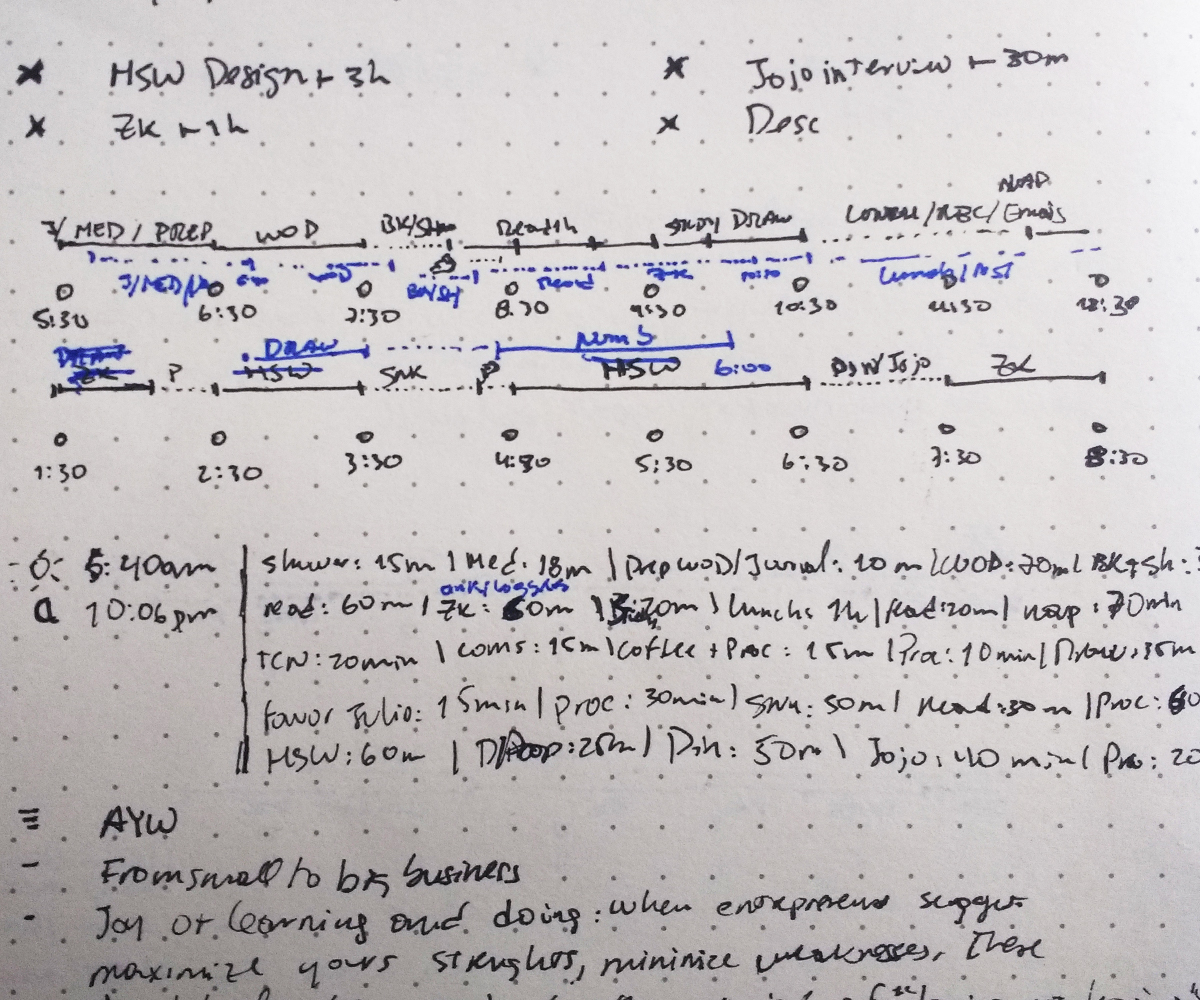 HSW Design + 3h
Jojo interview + 30m
ZK + 1h
Desc
NAP
J/MED/PREP WOD BK/Shw Read 1h STUDY DRAW LUNCH/REC/Emails
J/MED/ WOD BK/SH Read ZK 10:10 Lunch/Rest
5:30 6:30 7:30 8:30 9:30 10:30 11:30 12:30
DRAW DRAW 6:00
ZK P HSW SNK P HSW DIN/Jojo ZK
1:30 2:30 3:30 4:30 5:30 6:30 7:30 8:30
5:40am shower: 15m | Med: 18m | Prep WOD/Jurnal: 10m | WOD: 70m | BK+sh:
10:06pm read: 60m | ZK: 60m | 20m | Lunch: 1h | Read: 20m | nap: 70min
TCN: 20min | coms: 15m | coffee + Proc: 15m | Pro: 10min | Draw: 35m
favor Julio: 15min | proc: 30min | snk: 50m | Read: 30m | Proc:
HSW: 60m | D/Poop: 25m | Din: 50m | Jojo: 40min | Pro: 20
AYW
- From small to big business
- Joy of learning and doing: when entrepreneur suggest
maximize yours strenghts, minimize weaknesses. These